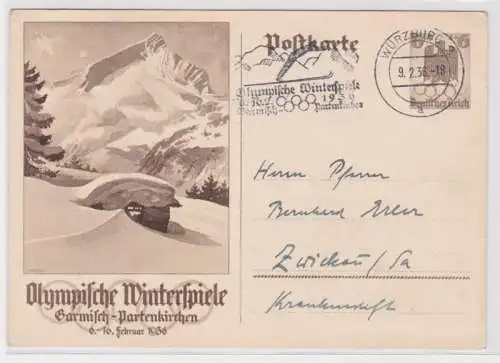 Postkarte
WÜRZBURG
9.2.36.-18
a
Olympische Winterspiele
6.-16.2. 1936
Garmisch- Partenkirchen
6 6
Deutsches Reich
Herrn Pfarrer
Bernhard
Zwickau/Sa
Krankenstift
Olympische Winterspiele
Garmisch-Partenkirchen
6.-16. Februar 1936